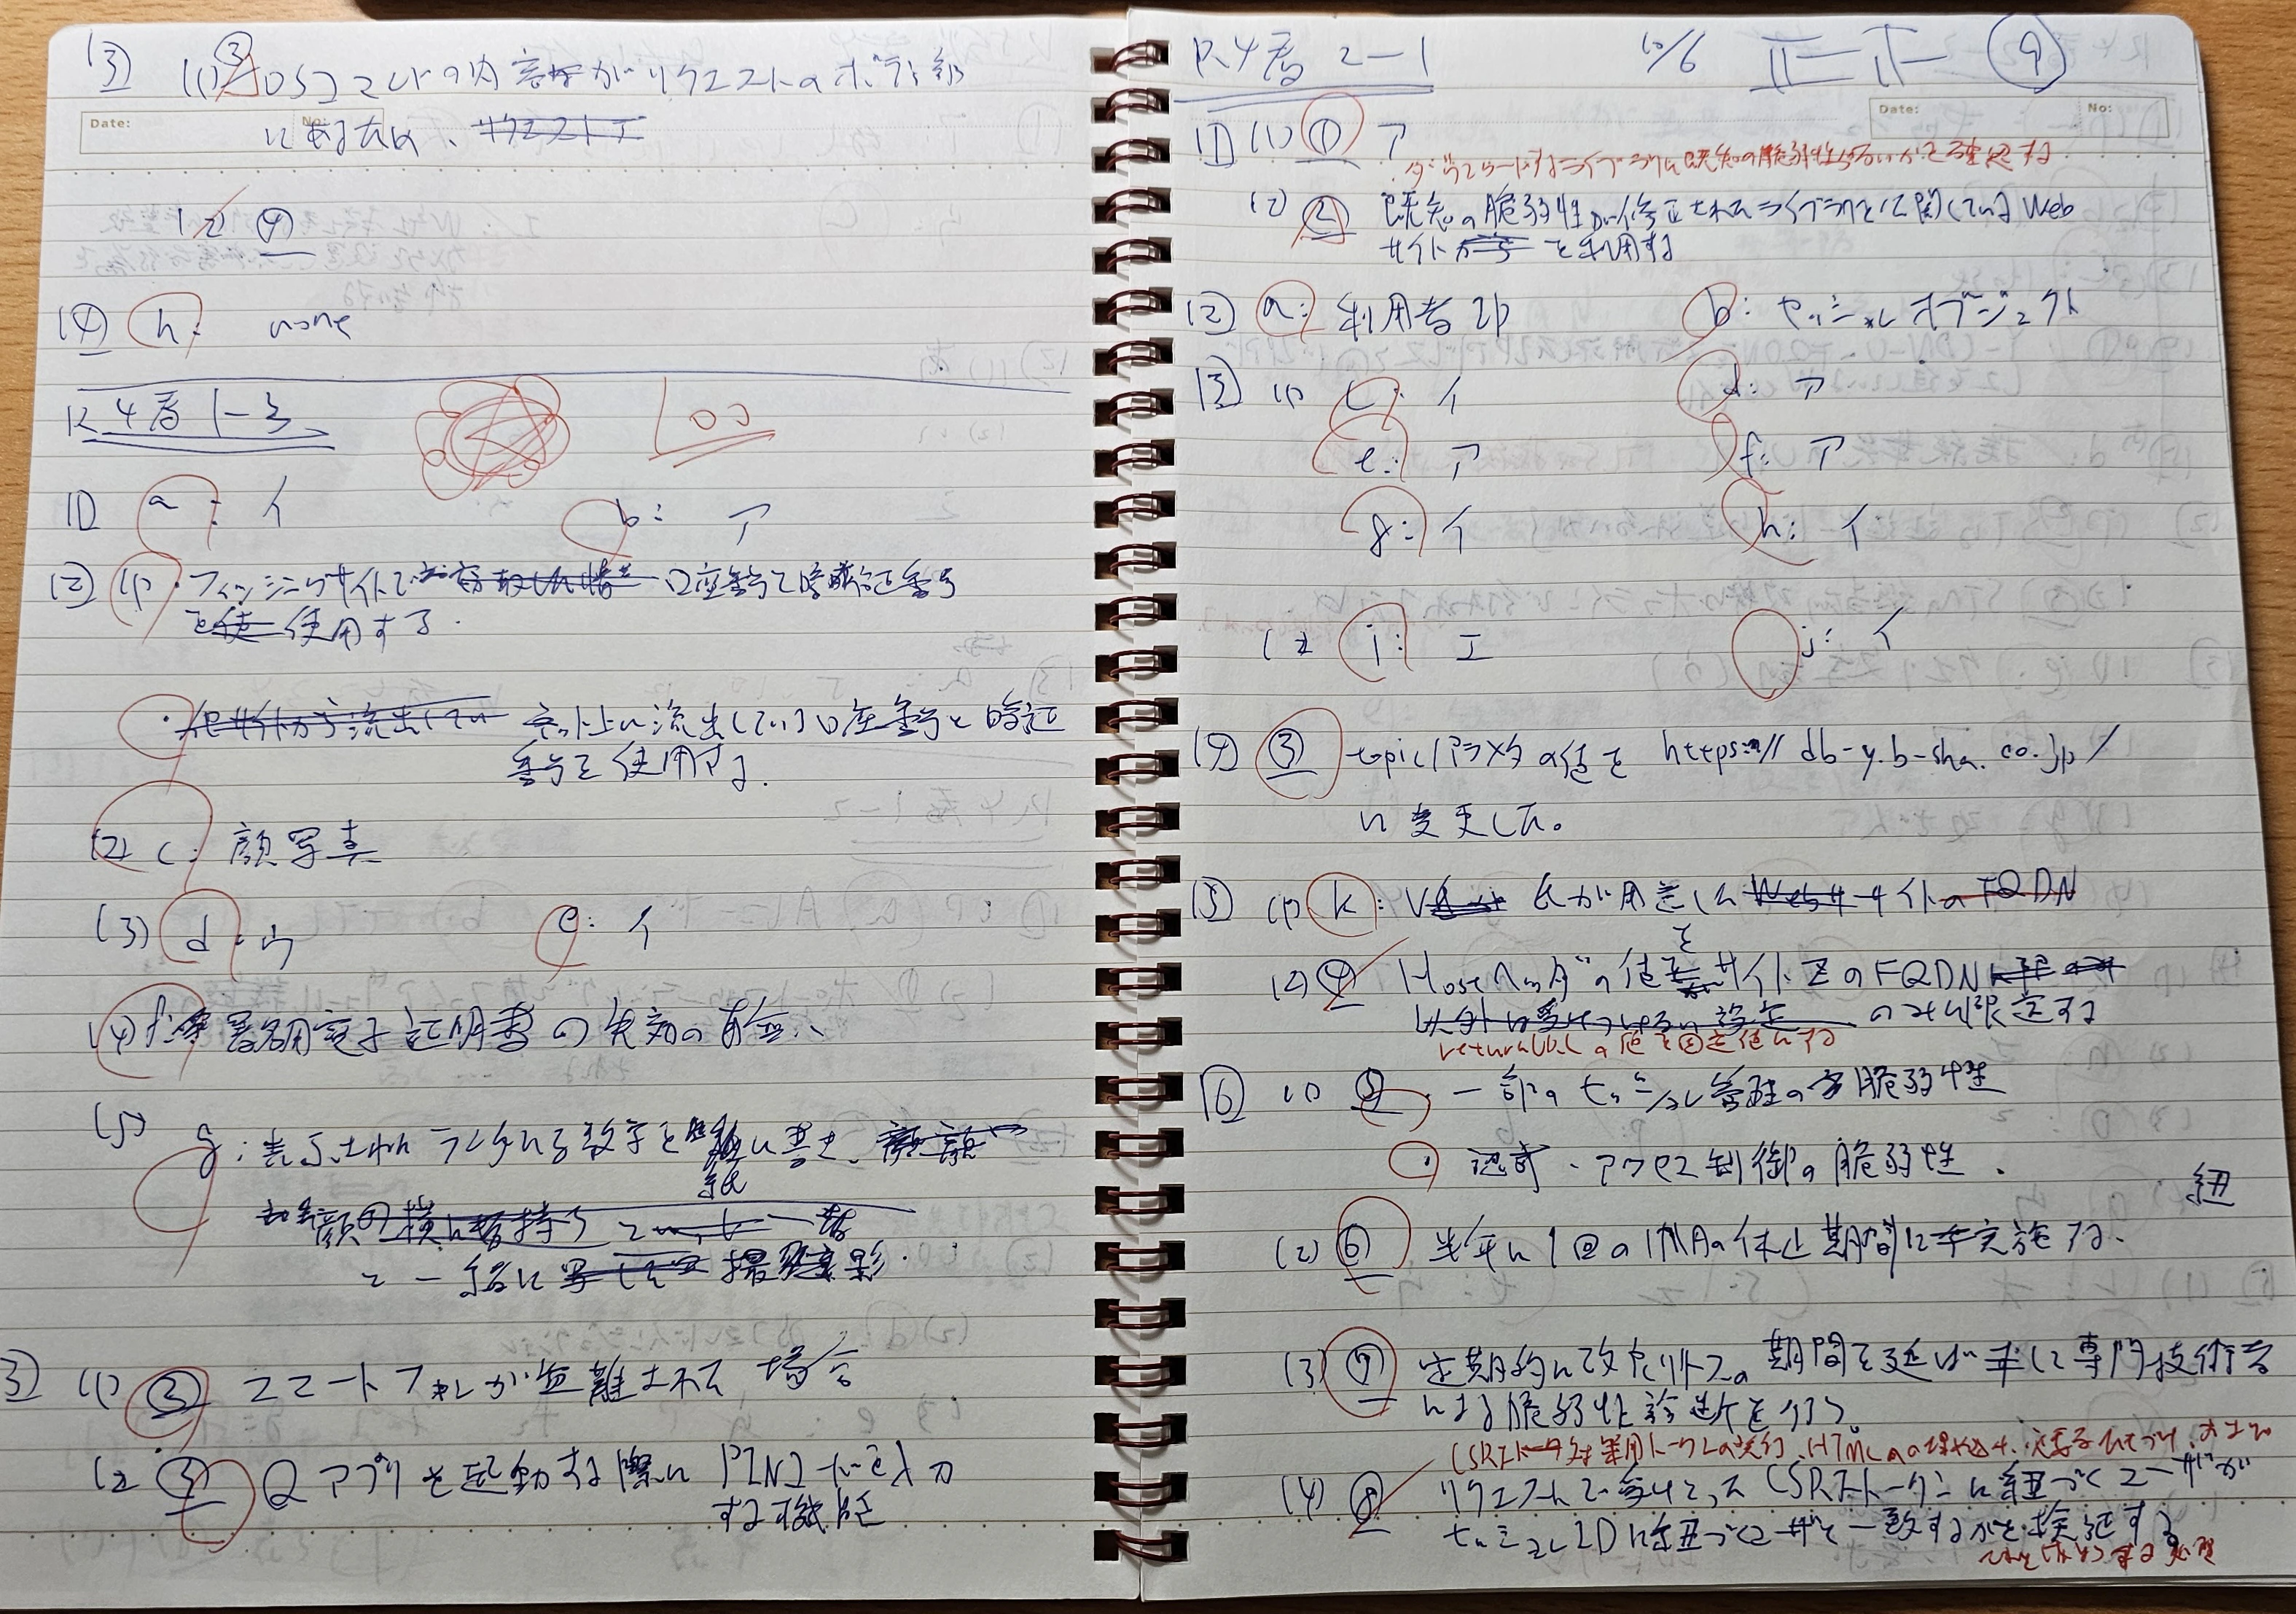 [3] (1) ③ OSコマンドの内容がリクエストのボディ部
にあるため、
Date: No:
(2) ④
[4] h: none
R4春 1-3 100
[1] a: イ b: ア
[2] (1) ・フィッシングサイトで 口座番号と暗証番号
を使 使用する.
・ ネット上に流出している口座番号と暗証
番号を使用する.
(2) c: 顔写真
(3) d: ウ e: イ
(4) f: 署名用電子証明書の失効の有無
(5) g: 表示されたランダムな数字を紙に書き、
と一緒に 撮影
[3] (1) ③ スマートフォンが盗難された場合
(2) ④ Qアプリを起動する際にPINコードを入力
する機能
R4春 2-1 10/6 正正 ⑨
Date: No:
[1] (1) ① ア
・ダウンロードするライブラリに既知の脆弱性がないかを確認する
(2) ② 既知の脆弱性が修正されたライブラリを公開しているWeb
サイトから を利用する
[2] a: 利用者ID b: セッションオブジェクト
[3] (1) c: イ d: ア
e: ア f: ア
g: イ h: イ
(2) i: エ j: イ
[4] ③ topicパラメタの値を https://db-y.b-sha.co.jp/
に変更した。
[5] (1) k: V氏が用意したWebサイトのFQDN
(2) ④ Hostヘッダの値をサイトZのFQDN
のみに限定する
returnURLの値を固定値にする
[6] (1) ⑤ ・一部のセッション管理の脆弱性
・認可・アクセス制御の脆弱性.
(2) ⑥ 半年に1回の 休止期間に実施する.
紐
(3) ⑦ 定期的に改良リリースの期間を延ばして専門技術者
による脆弱性診断を行う。
CSRF対策用トークンの発行、HTMLへの埋め込み、必要な
(4) ⑧ リクエストで受けとったCSRFトークンに紐づくユーザが
セッションIDに紐づくユーザと一致するかを検証する
処理